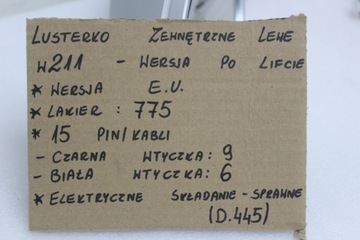 LUSTERKO ZEWNĘTRZNE LEWE
W211 - WERSJA PO LIFCIE
* WERSJA E.U.
* LAKIER : 775
* 15 PIN/KABLI
- CZARNA WTYCZKA: 9
- BIAŁA WTYCZKA: 6
* ELEKTRYCZNE SKŁADANIE - SPRAWNE
(D.445)